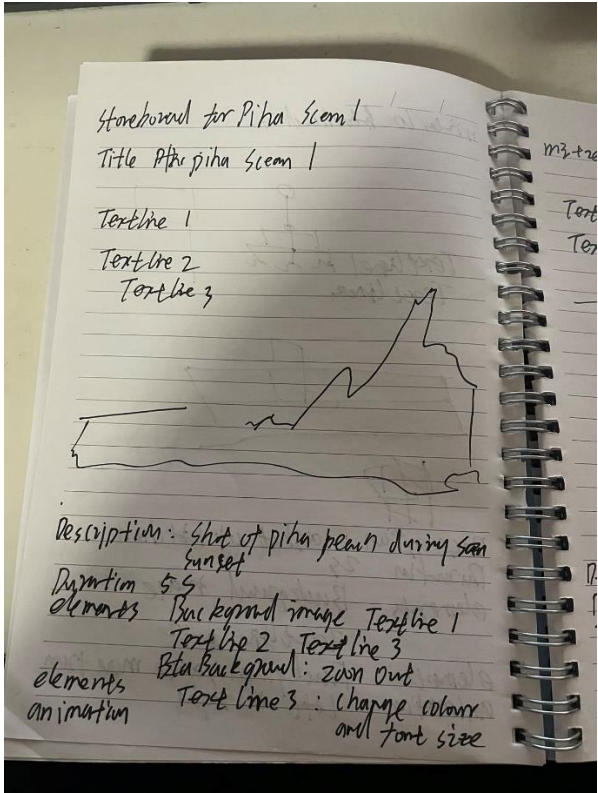 Storeborad for Piha Scem 1
Title piha Scean 1
Textline 1
Textline 2
Textline 3
Description: Shot of piha peach during
sunset
Duration 5 S
elements Background image Textline 1
Textline 2 Textline 3
elements Background: zoon out
animation Text line 3: change colour
and font size
m3+20
Text
Te